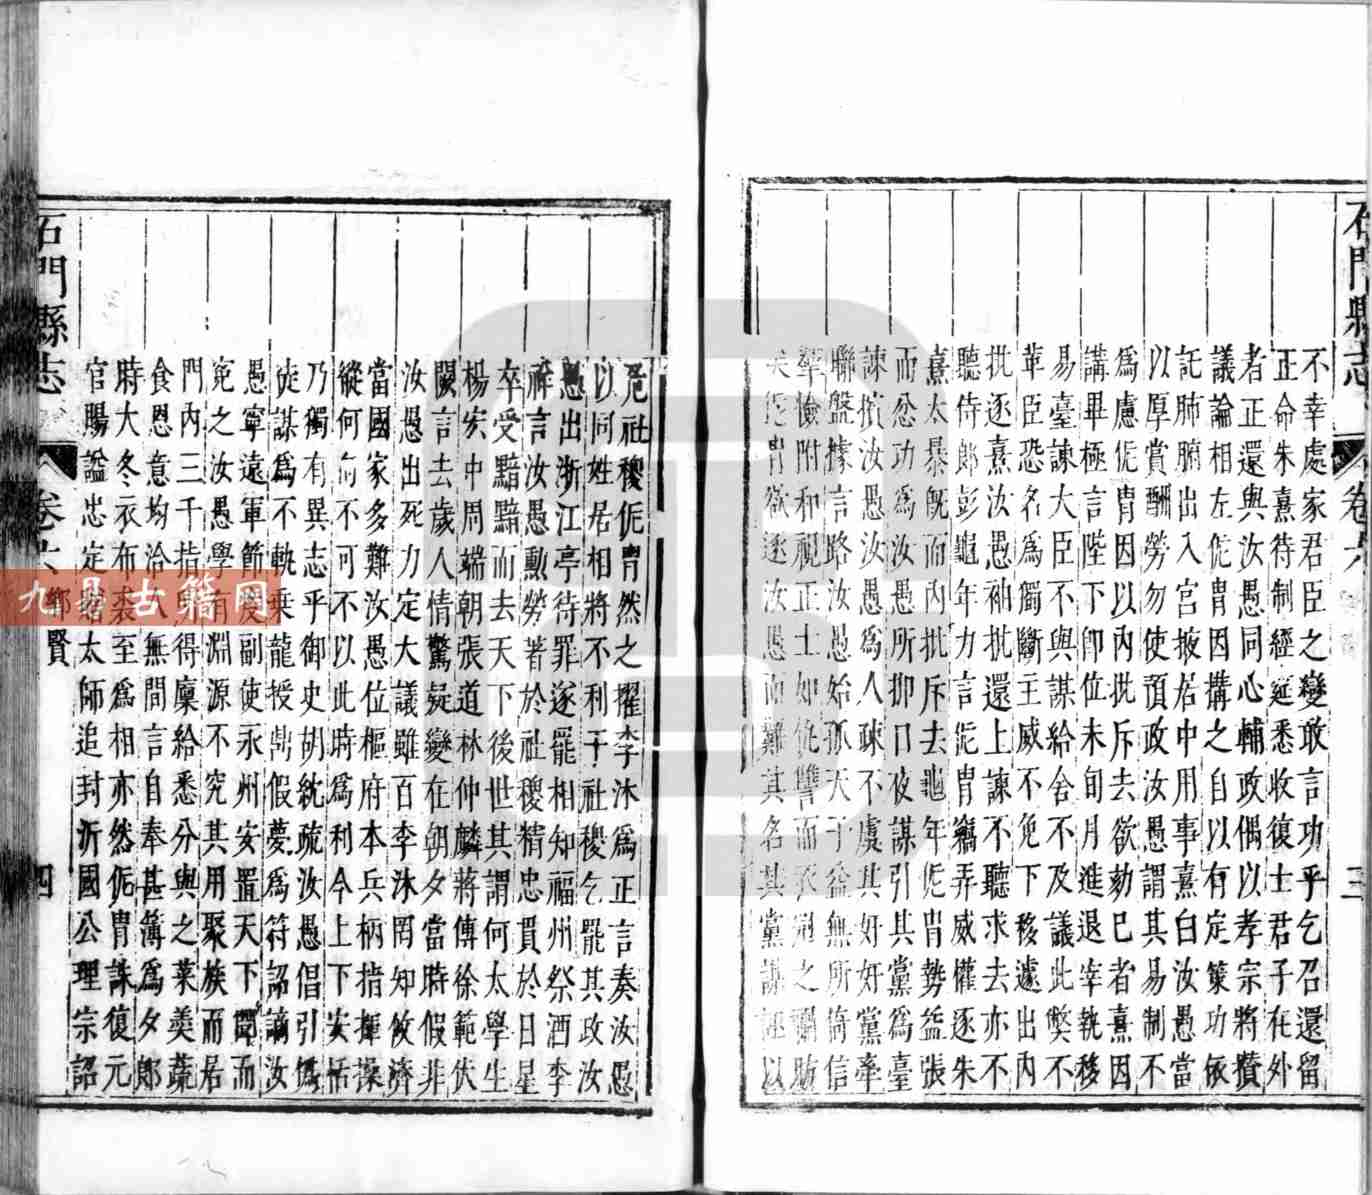 石門縣志
卷六
三
不幸處家君臣之變敢言功乎乞召還留
正命朱熹待制經筵悉收復士君子在外
者正還與汝愚同心輔政偶以孝宗將攢
議論相左侂胄因搆之自以有定策功依
託肺腑出入宮掖居中用事熹白汝愚當
以厚賞酬勞勿使預政汝愚謂其易制不
爲慮侂胄因以內批斥去欲勃已者熹因
講畢極言陛下卽位未旬月進退宰執移
易臺諫大臣不與謀給舍不及議此弊不
革臣恐名爲獨斷主威不免下移遽出內
批逐熹汝愚袖批還上諫不聽求去亦不
聽侍郎彭龜年力言侂胄竊弄威權逐朱
熹太暴旣而內批斥去龜年侂胄勢益張
而忿功爲汝愚所抑日夜謀引其黨爲臺
諫擯汝愚汝愚爲人疎不虞其奸奸黨牽
聯盤據言路汝愚始孤天子益無所倚信
羣憸附和視正士如仇讐而衣冠之禍
矣侂胄欲逐汝愚而難其名其黨謀誣以
危社稷侂胄然之擢李沐爲正言奏汝愚
以同姓居相將不利于社稷乞罷其政汝
愚出浙江亭待罪遂罷相知福州祭酒李
祥言汝愚勳勞著於社稷精忠貫於日星
卒受黯黯而去天下後世其謂何太學生
楊宏中周端朝張道林仲麟蔣傳徐範伏
闕言去歲人情驚疑變在朝夕當時假非
汝愚出死力定大議雖百李沐罔知攸濟
當國家多難汝愚位樞府本兵柄指揮操
縱何向不可不以此時爲利今上下安恬
乃獨有異志乎御史胡紘疏汝愚倡引僞
徒謀爲不軌乘龍授鼎假夢爲符詔謫汝
愚寧遠軍節度副使永州安置天下聞而
寃之汝愚學有淵源不究其用聚族而居
門內三千指所得廩給悉分與之菜羹蔬
食恩意均洽人無間言自奉甚簿爲夕郎
時大冬衣布裘至爲相亦然侂胄誅復元
官賜諡忠定贈太師追封沂國公理宗詔
石門縣志
卷六
鄉賢
四
九品古籍网